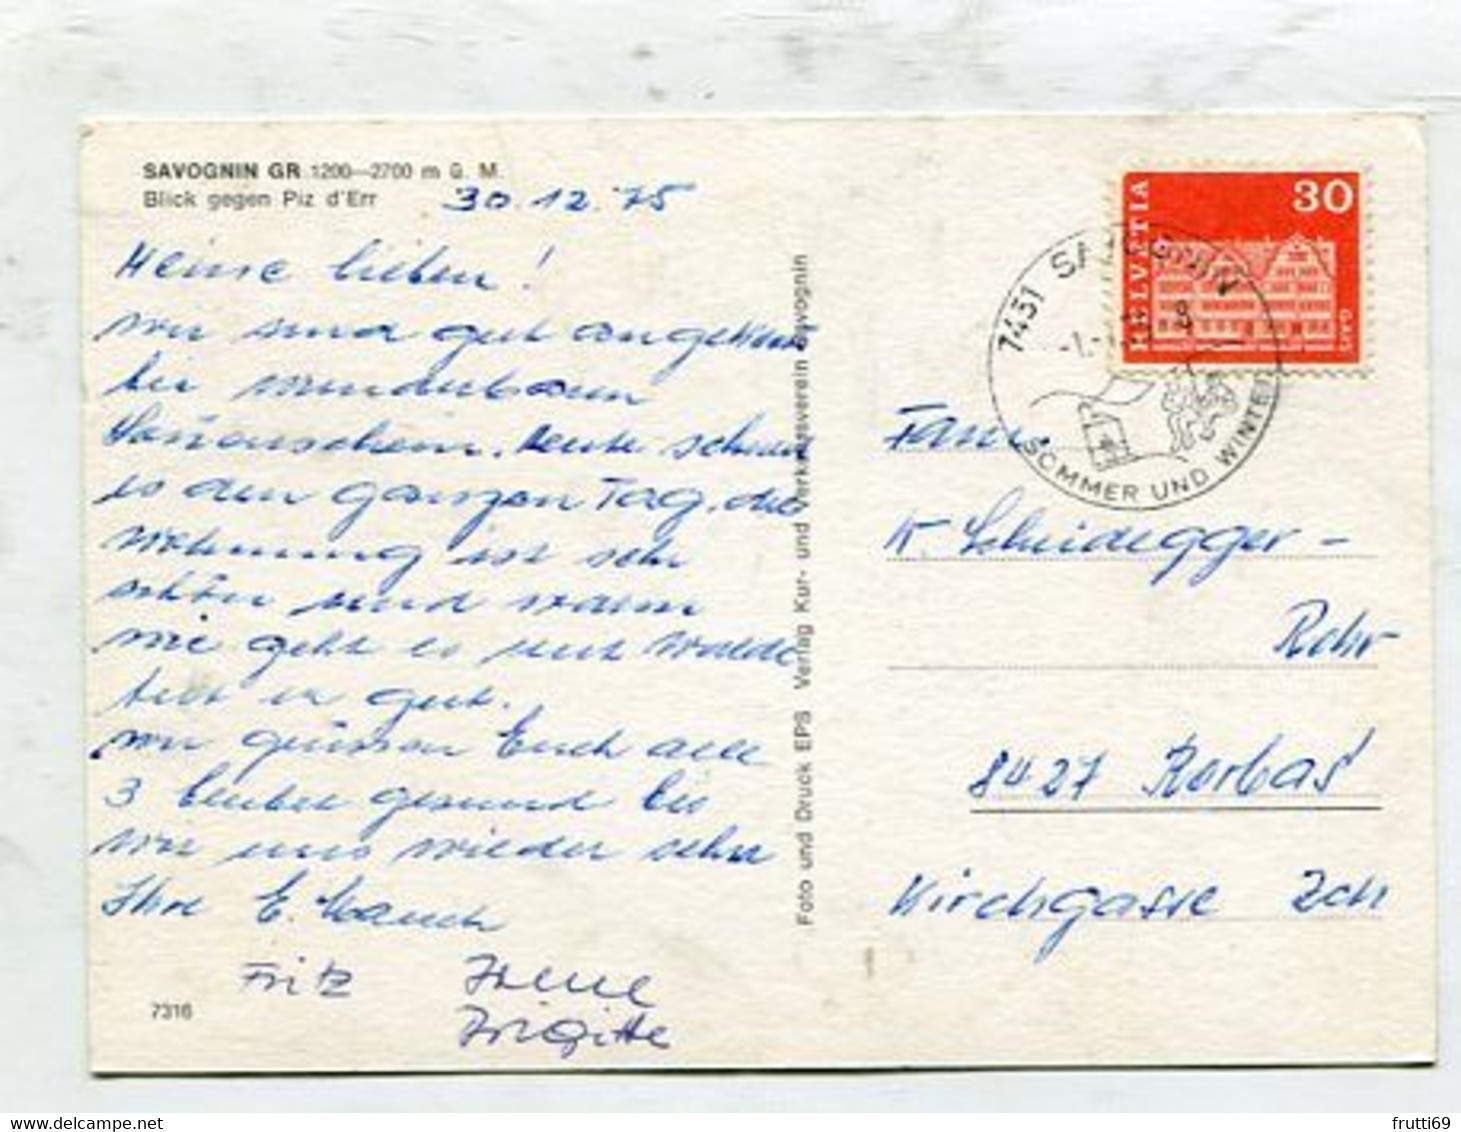 SAVOGNIN GR 1200—2700 m ü. M.
Blick gegen Piz d'Err
30.12.75
Meine lieben!
wir sind gut angekom
bei wunderbarem
Sonnenschein. Heute scheint
es den ganzen Tag, die
Wohnung ist sehr
schön und warm
wie geht es uns
ist er gut.
wir grüssen Euch alle
3 bleibet gesund bis
wir uns wieder sehn
Ihre E.
Fritz Irene
Brigitte
7316
Foto und Druck EPS Verlag Kur- und Verkehrsverein Savognin
HELVETIA
30
GAIS
7451 SAVOGNIN
SOMMER UND WINTER
Fam.
W. Scheidegger-
Rohr
8427 Rorbas
Kirchgasse Zch
frutti69